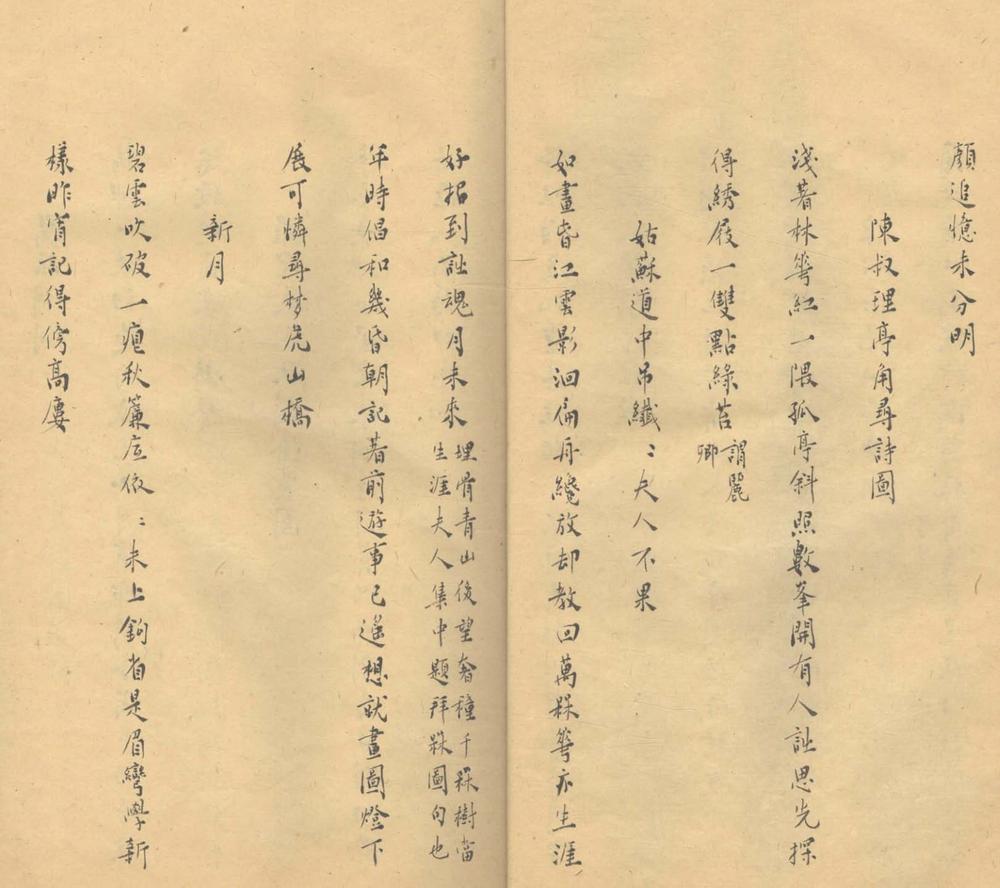 顏追憶未分明
陳叔理亭角尋詩圖
淺著林華紅一隈孤亭斜照數峯開有人訨思先探
得綉屐一雙點綠苔謂麗
卿
姑蘇道中吊纖〻夫人不果
如畫昏江雲影洄扁舟纔放却教回萬槑華亦生涯
好招到訨魂月未來埋骨青山後望奢種千槑樹當
生涯夫人集中題拜槑圖句也
年時倡和幾昏朝記著前遊事已遙想就畫圖燈下
展可憐尋梦虎山橋
新月
碧雲吹破一痕秋簾底依〻未上鉤省是眉彎學新
樣昨宵記得傍高廔